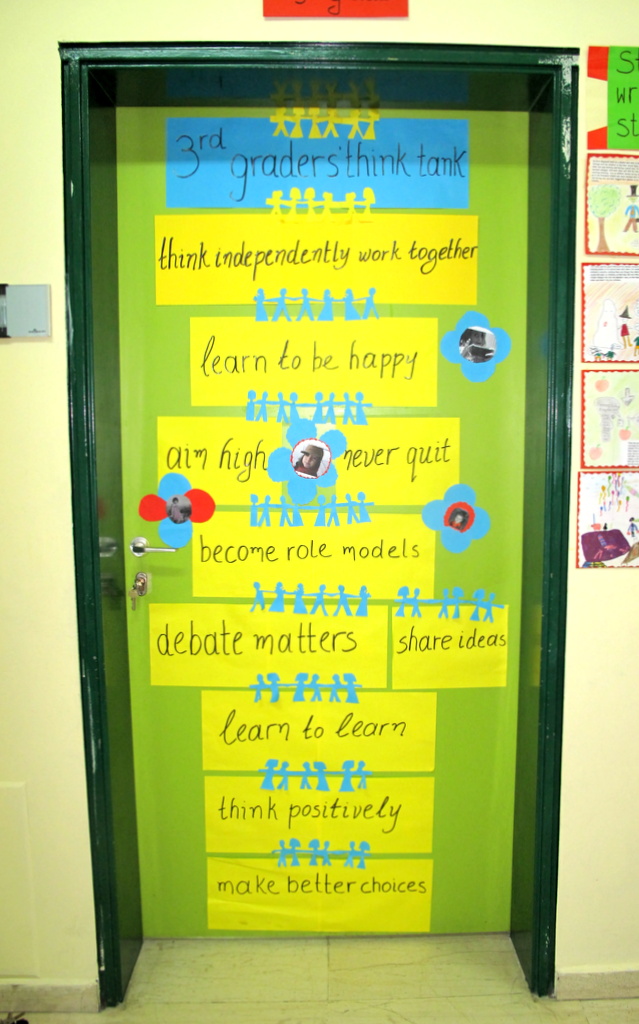 3rd graders' think tank
think independently work together
learn to be happy
aim high never quit
become role models
debate matters
share ideas
learn to learn
think positively
make better choices